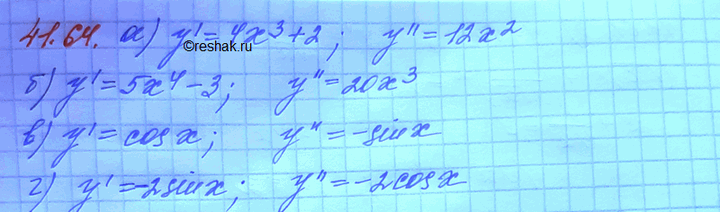 41.64. а) y' = 4x³ + 2; y" = 12x²
©reshak.ru
б) y' = 5x⁴ - 3; y" = 20x³
в) y' = cos x; y" = -sin x
г) y' = -2 sin x; y" = -2 cos x